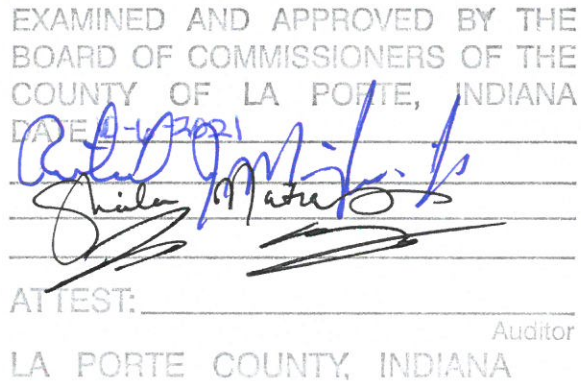 EXAMINED AND APPROVED BY THE
BOARD OF COMMISSIONERS OF THE
COUNTY OF LA PORTE, INDIANA
DATE
Sheila Matias
ATTEST:
Auditor
LA PORTE COUNTY, INDIANA